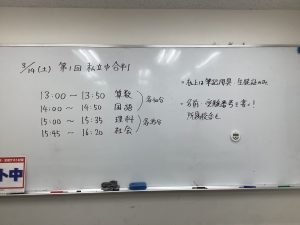 3/14(土) 第1回 私立中合判
13:00 ～ 13:50 算数
14:00 ～ 14:50 国語
各50分
15:00 ～ 15:35 理科
15:45 ～ 16:20 社会
各35分
・机上は筆記用具
・名前・受験番号を書く!
所属校舎も
ト中